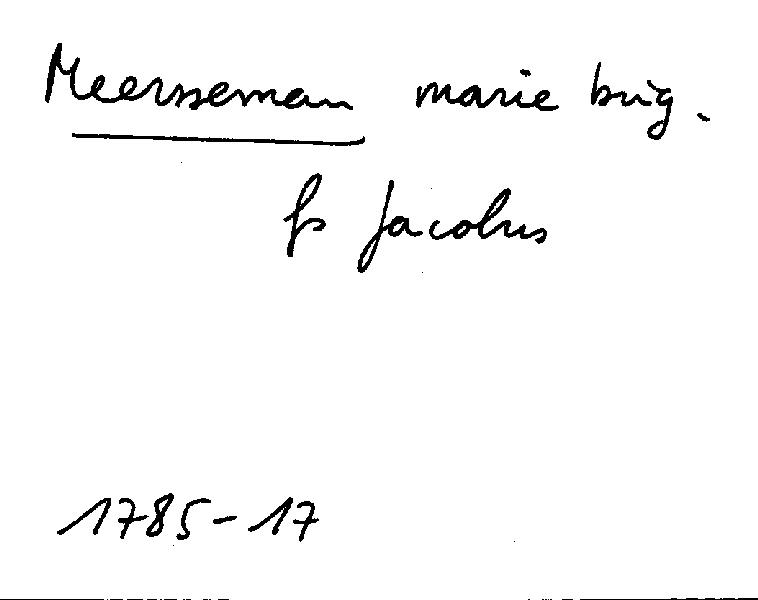 Meersseman marie brig.
fs Jacobus
1785-17